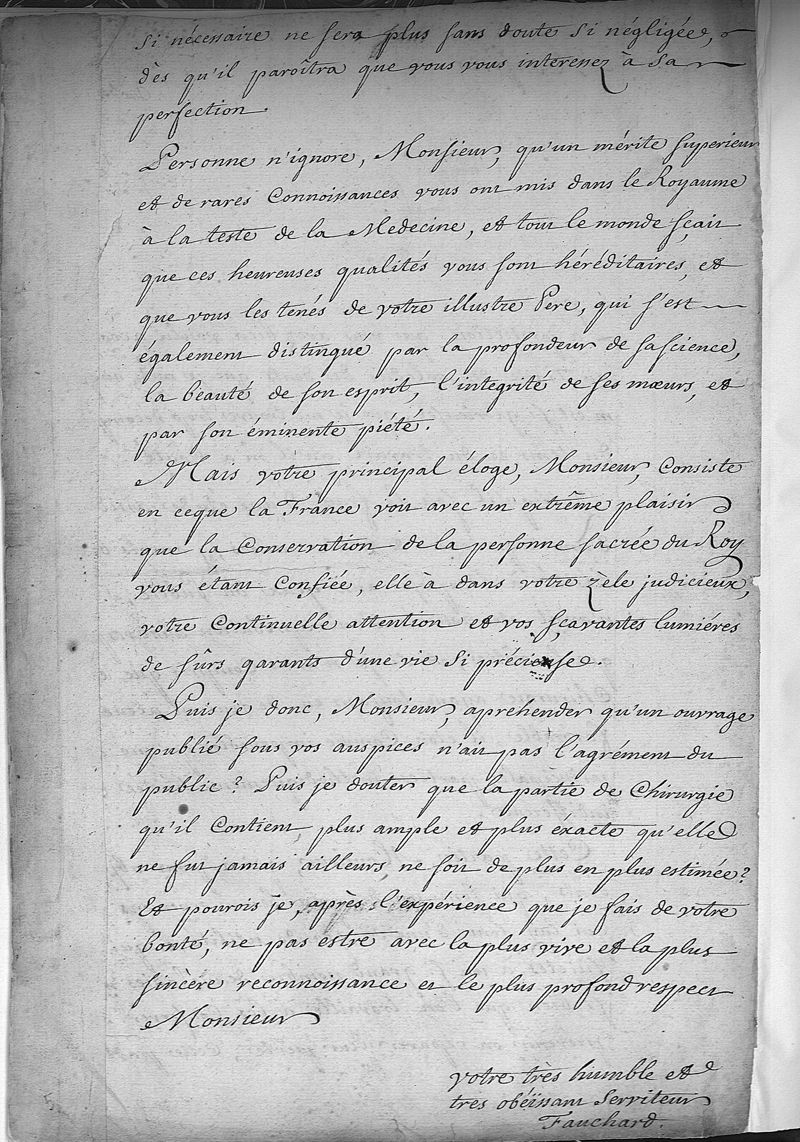 si nécessaire ne sera plus sans doute si négligée,
dès qu'il paroîtra que vous vous interessez à sa
perfection.
Personne n'ignore, Monsieur, qu'un mérite superieur
et de rares connoissances vous ont mis dans le Royaume
à la teste de la Medecine, et tout le monde sçait
que ces heureuses qualités vous sont héréditaires, et
que vous les tenés de votre illustre Pere, qui s'est
également distingué par la profondeur de sa science,
la beauté de son esprit, l'integrité de ses mœurs, et
par son éminente piété.
Mais votre principal éloge, Monsieur, consiste
en ceque la France voit avec un extrême plaisir
que la Conservation de la personne sacrée du Roy
vous étant confiée, elle à dans votre zèle judicieux,
votre continuelle attention et vos sçavantes lumiéres
de sûrs garants d'une vie si précieuse.
Puis je donc, Monsieur, aprehender qu'un ouvrage
publié sous vos auspices n'ait pas l'agrément du
public? Puis je douter que la partie de Chirurgie
qu'il contient, plus ample et plus éxacte qu'elle
ne fut jamais ailleurs, ne soit de plus en plus estimée?
Et pourois je, après l'expérience que je fais de votre
bonté, ne pas estre avec la plus vive et la plus
sincère reconnoissance et le plus profond respect
Monsieur
votre très humble et
tres obéissant Serviteur
Fauchard.